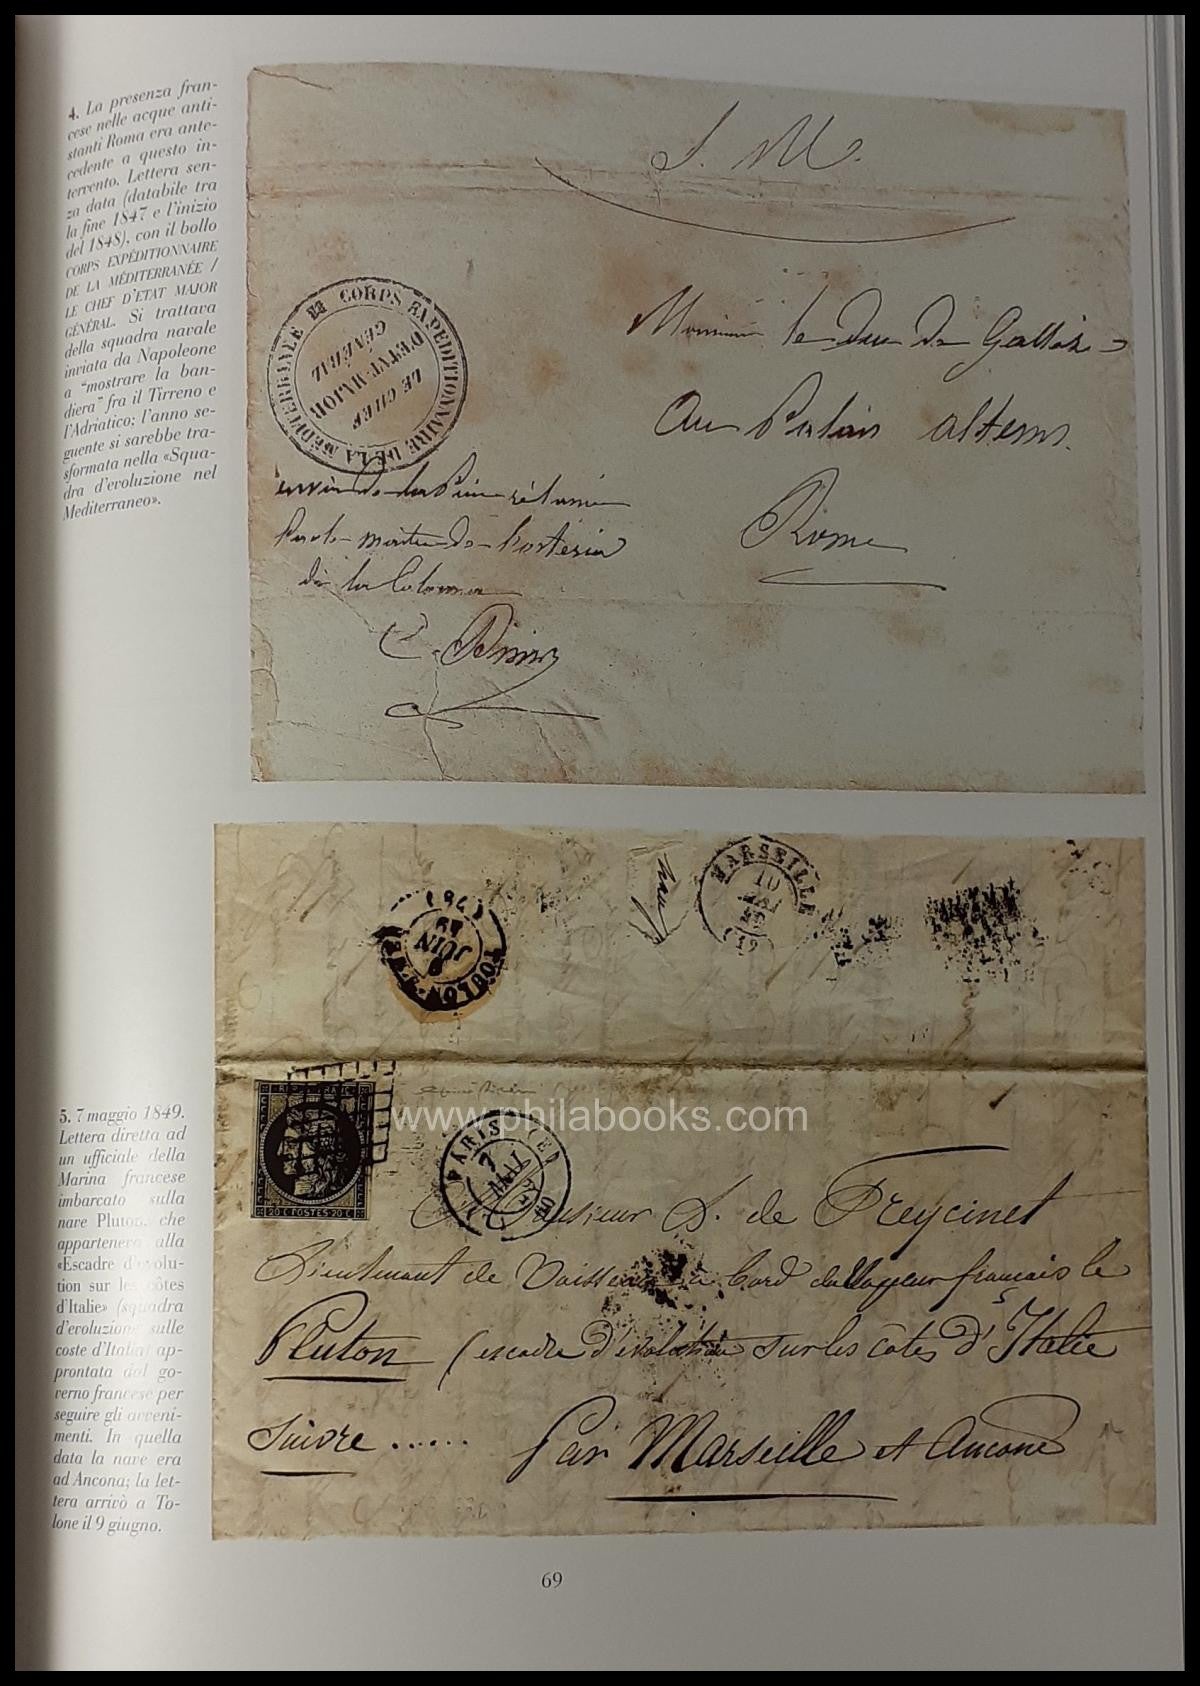 4. La presenza fran-
cese nelle acque anti-
stanti Roma era ante-
cedente a questo in-
tervento. Lettera sen-
za data (databile tra
la fine 1847 e l'inizio
del 1848), con il bollo
CORPS EXPÉDITIONNAIRE
DE LA MÉDITERRANÉE /
LE CHEF D'ETAT MAJOR
GÉNÉRAL. Si trattava
della squadra navale
inviata da Napoleone
a "mostrare la ban-
diera" fra il Tirreno e
l'Adriatico; l'anno se-
guente si sarebbe tra-
sformata nella «Squa-
dra d'evoluzione nel
Mediterraneo».
S. M.
CORPS EXPEDITIONNAIRE DE LA MÉDITERRANÉE
LE CHEF
D'ETAT MAJOR
GÉNÉRAL
Monsieur le duc de
Au Palais altems.
Rome
de la
MARSEILLE
10
TOULON
9
JUIN
49
(78)
REPUB. FRANC.
20 C POSTES 20 C
PARIS
7
MAI
www.philabooks.com
5. 7 maggio 1849.
Lettera diretta ad
un ufficiale della
Marina francese
imbarcato sulla
nave Pluton, che
apparteneva alla
«Escadre d'evolu-
tion sur les côtes
d'Italie» (squadra
d'evoluzione sulle
coste d'Italia) ap-
prontata dal go-
verno francese per
seguire gli avveni-
menti. In quella
data la nave era
ad Ancona; la let-
tera arrivò a To-
lone il 9 giugno.
Monsieur S. de Freycinet
Lieutenant de Vaisseau à bord du Vapeur français le
Pluton (escadre d'évolution sur les côtes d'Italie
Suivre ......
Par Marseille et Ancone
69